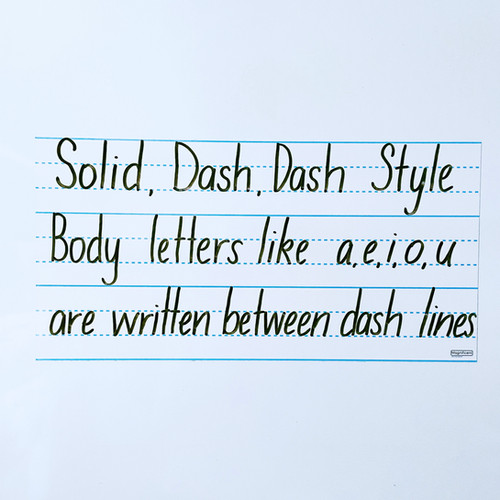 Solid, Dash, Dash Style
Body letters like a,e,i,o,u
are written between dash lines